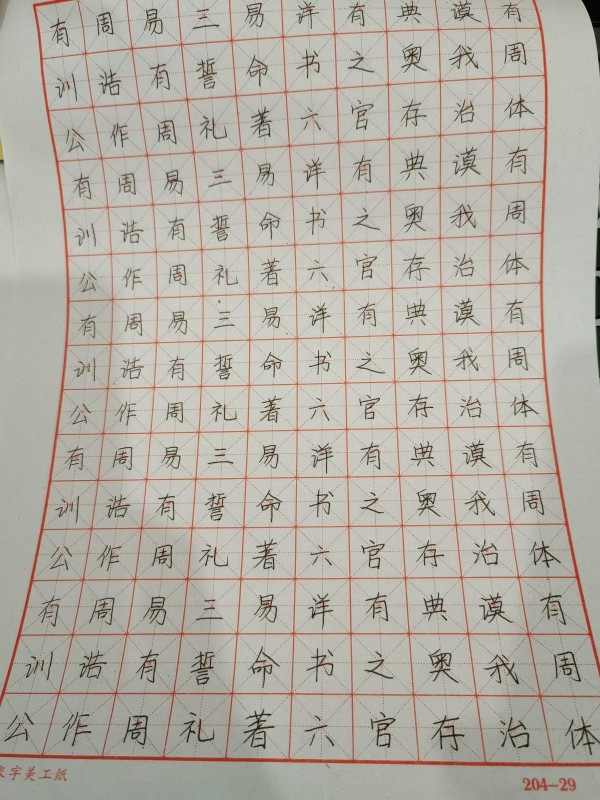 有周易三易详有典谟有
训浩有誓命书之奥我周
公作周礼著六官存治体
有周易三易详有典谟有
训浩有誓命书之奥我周
公作周礼著六官存治体
有周易三易详有典谟有
训浩有誓命书之奥我周
公作周礼著六官存治体
有周易三易详有典谟有
训浩有誓命书之奥我周
公作周礼著六官存治体
有周易三易详有典谟有
训浩有誓命书之奥我周
公作周礼著六官存治体
字美工纸 204-29